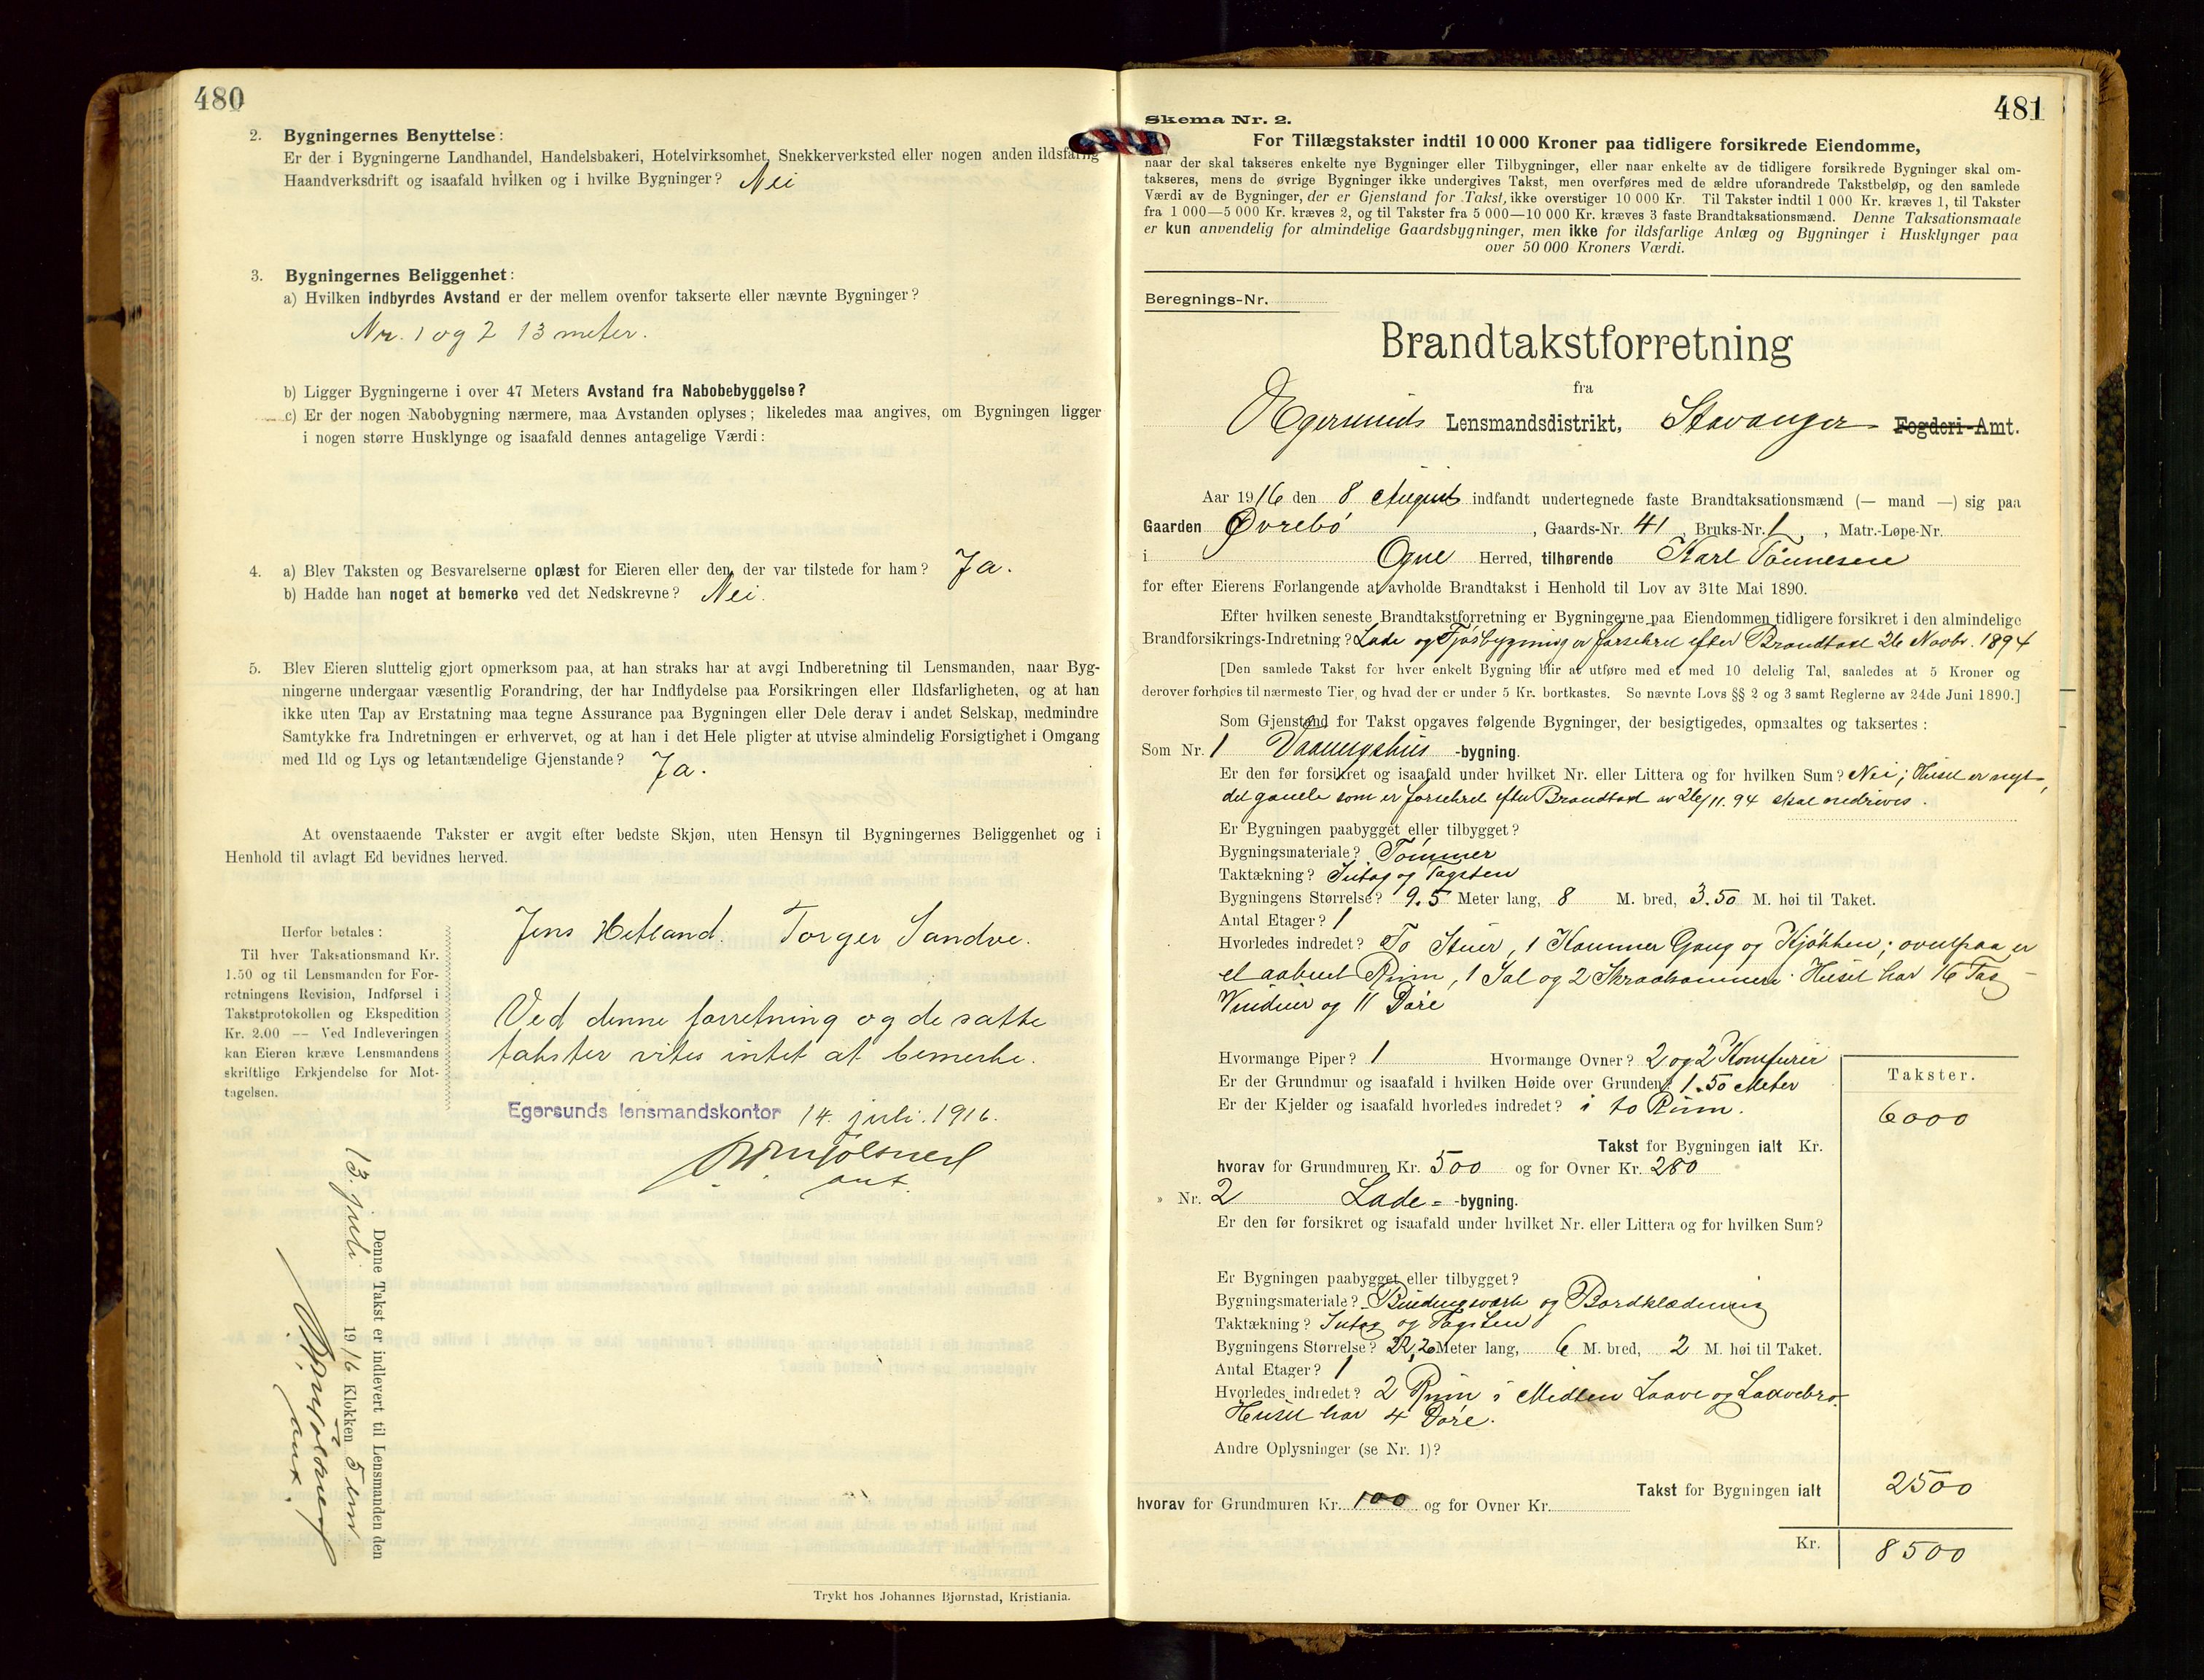 480
2. Bygningernes Benyttelse:
Er der i Bygningerne Landhandel, Handelsbakeri, Hotelvirksomhet, Snekkerverksted eller nogen anden ildsfarlig
Haandverksdrift og isaafald hvilken og i hvilke Bygninger? Nei
3. Bygningernes Beliggenhet:
a) Hvilken indbyrdes Avstand er der mellem ovenfor takserte eller nævnte Bygninger?
Nr. 1 og 2 13 meter.
b) Ligger Bygningerne i over 47 Meters Avstand fra Nabobebyggelse?
c) Er der nogen Nabobygning nærmere, maa Avstanden oplyses; likeledes maa angives, om Bygningen ligger
i nogen større Husklynge og isaafald dennes antagelige Værdi:
4. a) Blev Taksten og Besvarelserne oplæst for Eieren eller den, der var tilstede for ham? Ja.
b) Hadde han noget at bemerke ved det Nedskrevne? Nei.
5. Blev Eieren sluttelig gjort opmerksom paa, at han straks har at avgi Indberetning til Lensmanden, naar Byg-
ningerne undergaar væsentlig Forandring, der har Indflydelse paa Forsikringen eller Ildsfarligheten, og at han
ikke uten Tap av Erstatning maa tegne Assurance paa Bygningen eller Dele derav i andet Selskap, medmindre
Samtykke fra Indretningen er erhvervet, og at han i det Hele pligter at utvise almindelig Forsigtighet i Omgang
med Ild og Lys og letantændelige Gjenstande? Ja.
At ovenstaaende Takster er avgit efter bedste Skjøn, uten Hensyn til Bygningernes Beliggenhet og i
Henhold til avlagt Ed bevidnes herved.
Jens Hetland. Torger Sandve.
Herfor betales:
Til hver Taksationsmand Kr.
1.50 og til Lensmanden for For-
retningens Revision, Indførsel i
Takstprotokollen og Ekspedition
Kr. 2.00 — Ved Indleveringen
kan Eieren kræve Lensmandens
skriftlige Erkjendelse for Mot-
tagelsen.
Ved denne forretning og de satte
takster vites intet at bemerke.
Egersunds lensmandskontor 14. juli. 1916.
ant.
Denne Takst er indlevert til Lensmanden den
13. juli 1916 Klokken 5 em
ant.
Trykt hos Johannes Bjørnstad, Kristiania.
481
Skema Nr. 2.
For Tillægstakster indtil 10 000 Kroner paa tidligere forsikrede Eiendomme,
naar der skal takseres enkelte nye Bygninger eller Tilbygninger, eller naar enkelte av de tidligere forsikrede Bygninger skal om-
takseres, mens de øvrige Bygninger ikke undergives Takst, men overføres med de ældre uforandrede Takstbeløp, og den samlede
Værdi av de Bygninger, der er Gjenstand for Takst, ikke overstiger 10 000 Kr. Til Takster indtil 1 000 Kr. kræves 1, til Takster
fra 1 000—5 000 Kr. kræves 2, og til Takster fra 5 000—10 000 Kr. kræves 3 faste Brandtaksationsmænd. Denne Taksationsmaale
er kun anvendelig for almindelige Gaardsbygninger, men ikke for ildsfarlige Anlæg og Bygninger i Husklynger paa
over 50 000 Kroners Værdi.
Beregnings-Nr.
Brandtakstforretning
fra
Egersunds Lensmandsdistrikt, Stavanger Fogderi-Amt.
Aar 1916 den 8 August indfandt undertegnede faste Brandtaksationsmænd (— mand —) sig paa
Gaarden Øvrebø, Gaards-Nr. 41, Bruks-Nr. 1, Matr.-Løpe-Nr.
i Ogne Herred, tilhørende Karl Tønnesen
for efter Eierens Forlangende at avholde Brandtakst i Henhold til Lov av 31te Mai 1890.
Efter hvilken seneste Brandtakstforretning er Bygningerne paa Eiendommen tidligere forsikret i den almindelige
Brandforsikrings-Indretning? Lade og Fjøsbygning er forsikret efter Brandtaxt 26 Novbr. 1894
[Den samlede Takst for hver enkelt Bygning blir at utføre med et med 10 delelig Tal, saaledes at 5 Kroner og
derover forhøies til nærmeste Tier, og hvad der er under 5 Kr. bortkastes. Se nævnte Lovs §§ 2 og 3 samt Reglerne av 24de Juni 1890.]
Som Gjenstand for Takst opgaves følgende Bygninger, der besigtigedes, opmaaltes og taksertes:
Som Nr. 1 Vaaningshus -bygning.
Er den før forsikret og isaafald under hvilket Nr. eller Littera og for hvilken Sum? Nei; Huset er nyt,
det gamle som er forsikret efter Brandtaxt av 26/11.94 skal nedrives.
Er Bygningen paabygget eller tilbygget?
Bygningsmateriale? Tømmer
Taktækning? Sutag og Tagsten
Bygningens Størrelse? 9.5 Meter lang, 8 M. bred, 3.50 M. høi til Taket.
Antal Etager? 1
Hvorledes indredet? To Stuer, 1 Kammer Gang og Kjøkken; ovenpaa er
et aabent Rum, 1 Sal og 2 Skraakammere. Huset har 16 Fag
Vinduer og 11 Døre
Hvormange Piper? 1 Hvormange Ovner? 2 og 2 Komfurer
Er der Grundmur og isaafald i hvilken Høide over Grunden? 1.50 Meter
Er der Kjelder og isaafald hvorledes indredet? i to Rum.
Takster.
Takst for Bygningen ialt Kr. 6000
hvorav for Grundmuren Kr. 500 og for Ovner Kr. 280
» Nr. 2 Lade= -bygning.
Er den før forsikret og isaafald under hvilket Nr. eller Littera og for hvilken Sum?
Er Bygningen paabygget eller tilbygget?
Bygningsmateriale? Bindingsværk og Bordklædning
Taktækning? Sutag og Tagsten
Bygningens Størrelse? 22,20 Meter lang, 6 M. bred, 2 M. høi til Taket.
Antal Etager? 1
Hvorledes indredet? 2 Rum i Midten Laave og Laavebro.
Huset har 4 Døre.
Andre Oplysninger (se Nr. 1)?
Takst for Bygningen ialt 2500
hvorav for Grundmuren Kr. 100 og for Ovner Kr.
Kr. 8500